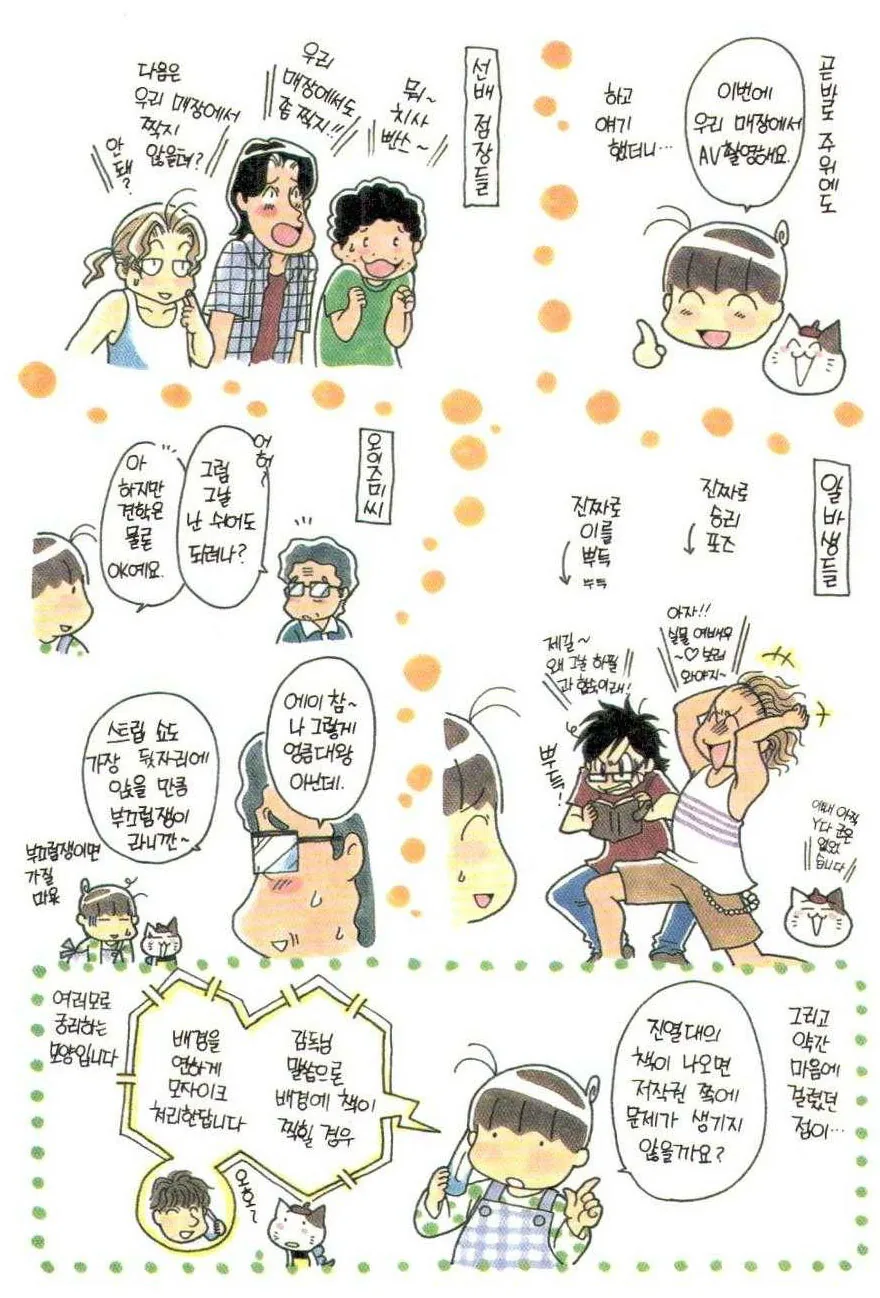 곧바로 주위에도
이번에
우리 매장에서
AV촬영해요.
하고
얘기
했더니…
선배 점장들
뭐~
치사
빤쓰~
우리
매장에서도
좀 찍지!!
다음은
우리 매장에서
찍지
않을려?
안
돼?
알바생들
진짜로
승리
포즈
진짜로
이를
뿌득
뿌득
아자!!
실물 여배우
~♡ 보러
와야지~
제길~
왜 그날 하필
과 합숙이래!
뿌득!
없었
습니다
어허~
그럼
그날
난 쉬어도
되려나?
아
하지만
견학은
물론
OK예요.
에이 참~
나 그렇게
엉큼대왕
아닌데.
스트립 쇼도
가장 뒷자리에
앉을 만큼
부끄럼쟁이
라니깐~
부끄럼쟁이면
가질
마욧
그리고
약간
마음에
걸렸던
점이…
진열대의
책이 나오면
저작권 쪽에
문제가 생기지
않을까요?
감독님
말씀으론
배경에 책이
찍힐 경우
배경을
연하게
모자이크
처리한답니다
여러모로
궁리하는
모양입니다